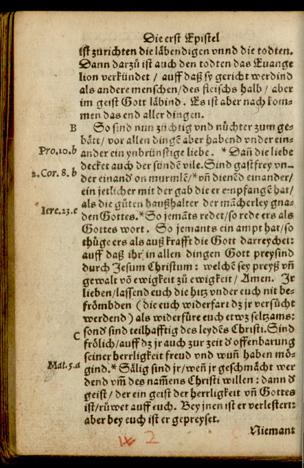 Die erst Epistel
ist zürichten die läbendigen vnnd die todten.
Dann darzů ist auch den todten das Euange
lion verkündet / auff daß sy gericht werdind
als andere menschen / des fleischs halb / aber
im geist Gott läbind. Es ist aber nach kom-
men das end aller dingen.
B So sind nun züchtig vnd nüchter zum ge-
bätt / vor allen dingē aber habend vnder ein-
Pro.10.b ander ein ynbrünstige liebe. * Dañ die liebe
decket auch der sünde vile. Sind gastfrey vn-
2.Cor.8.b der einand' on murmlē / * vñ dienēd einander /
ein jetlicher mit der gab die er empfangē hat /
als die gůten haußhalter der mācherley gna-
Iere.23.e den Gottes. * So jemāts redet / so rede ers als
Gottes wort. So jemants ein ampt hat / so
thüge ers als auß krafft die Gott darreychet:
auff daß ihr in allen dingen Gott preysind
durch Jesum Christum: welchē sey preyß vñ
gewalt võ ewigkeit zů ewigkeit / Amen. Ir
lieben / lassend euch die hitz vnder euch nit be-
frömbden (die euch widerfart dz jr versůcht
werdend) als widerfüre euch etwz seltzams:
sond' sind teilhafftig des leydēs Christi. Sind
C frölich / auff dz jr auch zur zeit d' offenbarung
seiner herrligkeit freud vnd wuñ haben mö-
Mat.5.a gind. * Sälig sind jr / weñ jr geschmācht wer
dend vm̄ des nam̄ens Christi willen: dann d'
geist / der ein geist der herrligkeit vñ Gottes
ist / růwet auff euch. Bey jnen ist er verlestert:
aber bey euch ist er gepreyset.
Niemant
2